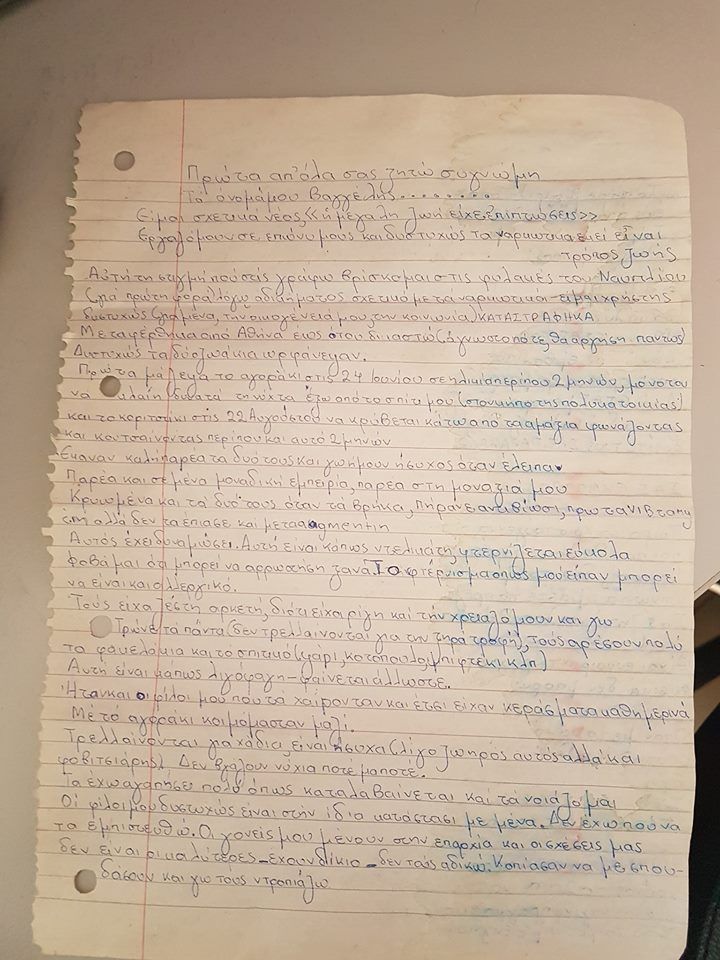 Πρώτα απ'όλα σας ζητώ συγνώμη
Το όνομάμου Βαγγέλης........
Είμαι σχετικά νέος,<<η μεγάλη ζωή είχε επιπτώσεις>>
Εργαζόμουν σε επώνυμους και δυστυχώς τα ναρκωτικά εκεί είναι
τρόπος ζωής
Αυτή τη στιγμή που στις γράφω βρίσκομαι στις φυλακές του Ναυπλίου
για πρώτη φορά λόγω αδικήματος σχετικό με τα ναρκωτικά-είμαι χρήστης
δυστυχώς (για μένα, την οικογένειά μου, την κοινωνία) ΚΑΤΑΣΤΡΑΦΗΚΑ
Μεταφέρθηκα από Αθήνα έως ότου δικαστώ (άγνωστο πότε, θα αργήση πάντως)
Δυστυχώς τα δύο ζωάκια ορφάνεψαν.
Πρώτα μάζεψα το αγοράκι στις 24 Ιουνίου σε ηλικία περίπου 2 μηνών, μόνο του
να κλαίη δυνατά τη νύχτα έξω από το σπίτι μου (στον κήπο της πολυκατοικίας)
και το κοριτσάκι στις 22 Αυγούστου να κρύβεται κάτω από τα αμάξια φωνάζοντας
και κουτσαίνοντας περίπου και αυτό 2 μηνών
Έκαναν καλή παρέα τα δυό τους και γω ήμουν ήσυχος όταν έλειπα.
Παρέα και σε μένα μοναδική εμπειρία, παρέα στη μοναξιά μου
Κρυωμένα και τα δυό τους όταν τα βρήκα, πήραν αντιβίωση, πρώτα
αλλά δεν τα έπιασε και μετά augmentin
Αυτός έχει δυναμώσει. Αυτή είναι κάπως ντελικάτη, φτερνίζεται εύκολα
φοβάμαι ότι μπορεί να αρρωστήση ξανά. Το φτέρνισμα όπως μου είπαν μπορεί
να είναι και αλλεργικό.
Τους είχα ζέστη αρκετή, διότι είχα ρίγη και την χρειαζόμουν και γω
Τρώνε τα πάντα (δεν τρελλαίνονται για την ξηρά τροφή), τους αρέσουν πολύ
τα φακελάκια και το σπιτικό (ψάρι, κοτόπουλο, μπιφτέκι κλπ)
Αυτή είναι κάπως λιγόφαγη-φαίνεται άλλωστε.
Ήταν και οι φίλοι μου που τα χαίρονταν και έτσι είχαν κεράσματα καθημερινά
Με το αγοράκι κοιμόμασταν μαζί.
Τρελλαίνονται για χάδια, είναι ήσυχα (λίγο ζωηρός αυτός αλλά και
φοβιτσιάρης). Δεν βγάζουν νύχια ποτέ μα ποτέ.
Τα έχω αγαπήσει πολύ όπως καταλαβαίνεται και τα νοιάζομαι
Οι φίλοι μου δυστυχώς είναι στην ίδια κατάσταση με μένα. Δεν έχω πού να
τα εμπιστευθώ. Οι γονείς μου μένουν στην επαρχία και οι σχέσεις μας
δεν είναι οι καλύτερες-έχουν δίκιο-δεν τους αδικώ. Κοπίασαν να με σπου-
δάσουν και γω τους ντροπιάζω